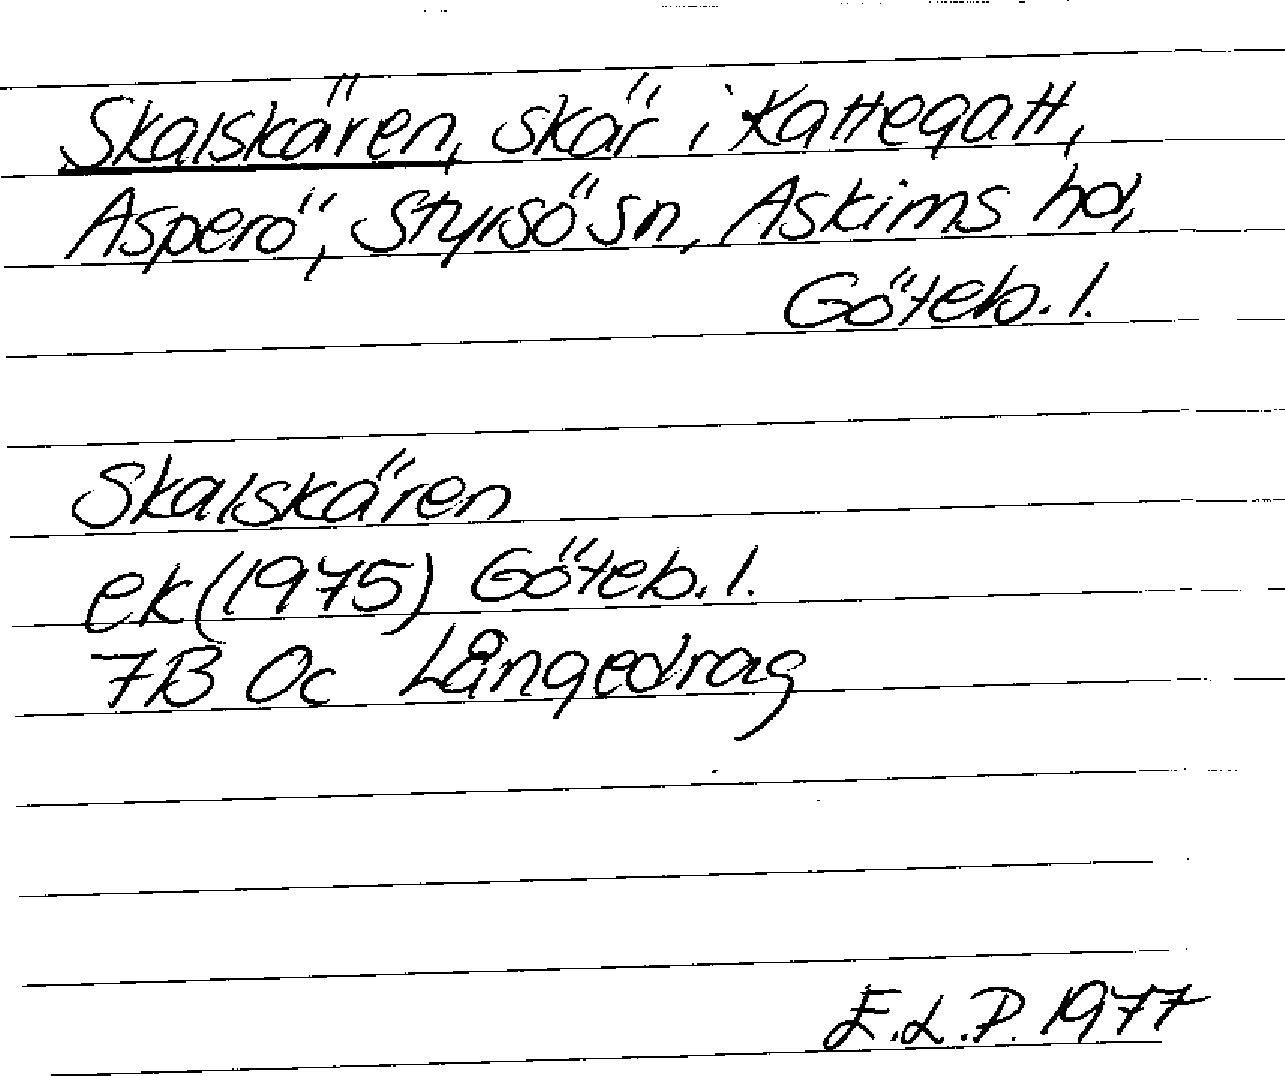 Skalskären, skär i Kattegatt,
Asperö, Styrsö sn, Askims hd,
Göteb. l.
Skalskären
ek (1975) Göteb. l.
7B 0c Långedrag
E.L.P. 1977